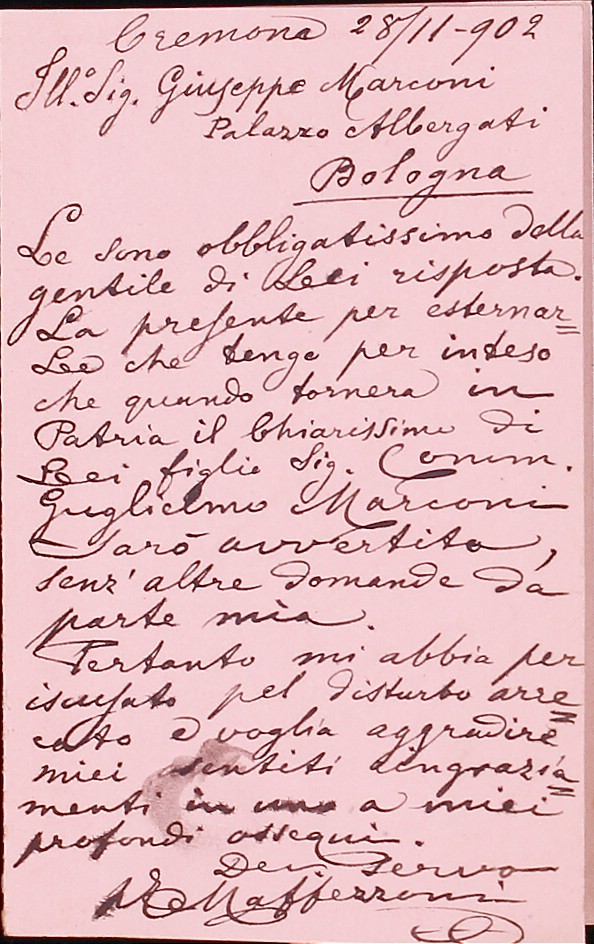 Cremona 28/11-902
Ill.º Sig. Giuseppe Marconi
Palazzo Albergati
Bologna
Le sono obbligatissimo della
gentile di Lei risposta.
La presente per esternar=
Le che tengo per inteso
che quando tornerà in
Patria il Chiarissimo di
Lei figlio Sig. Comm.
Guglielmo Marconi
sarò avvertito,
senz'altre domande da
parte mia.
Pertanto mi abbia per
iscusato pel disturbo arre=
cato e voglia aggradire
miei sentiti ringrazia=
menti in uno a miei
profondi ossequi.
Dev Servo
Maffezzoni